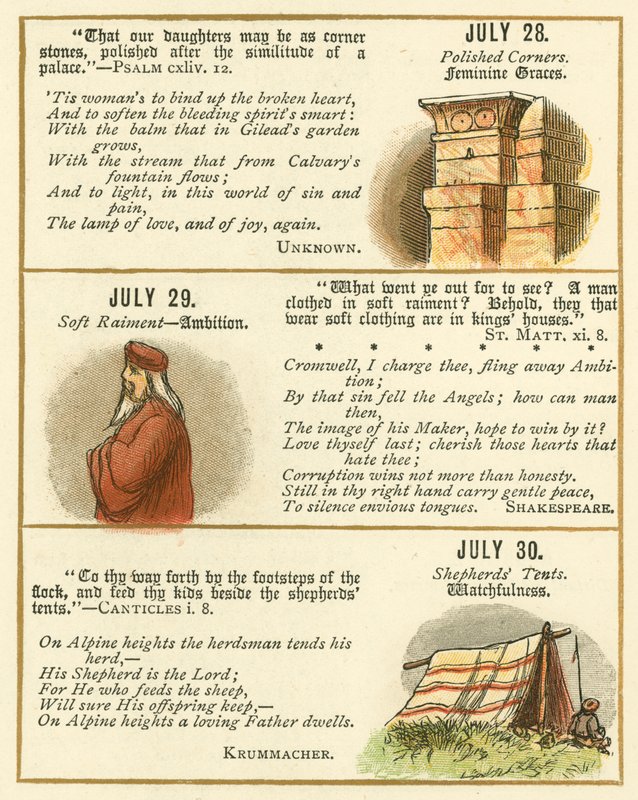 "That our daughters may be as corner
stones, polished after the similitude of a
palace."—PSALM cxliv. 12.
'Tis woman's to bind up the broken heart,
And to soften the bleeding spirit's smart:
With the balm that in Gilead's garden
grows,
With the stream that from Calvary's
fountain flows;
And to light, in this world of sin and
pain,
The lamp of love, and of joy, again.
UNKNOWN.
JULY 28.
Polished Corners.
Feminine Graces.
JULY 29.
Soft Raiment—Ambition.
"What went ye out for to see? A man
clothed in soft raiment? Behold, they that
wear soft clothing are in kings' houses."
ST. MATT. xi. 8.
* * * * * *
Cromwell, I charge thee, fling away Ambi-
tion;
By that sin fell the Angels; how can man
then,
The image of his Maker, hope to win by it?
Love thyself last; cherish those hearts that
hate thee;
Corruption wins not more than honesty.
Still in thy right hand carry gentle peace,
To silence envious tongues. SHAKESPEARE.
JULY 30.
Shepherds' Tents.
Watchfulness.
"Go thy way forth by the footsteps of the
flock, and feed thy kids beside the shepherds'
tents."—CANTICLES i. 8.
On Alpine heights the herdsman tends his
herd,—
His Shepherd is the Lord;
For He who feeds the sheep,
Will sure His offspring keep,—
On Alpine heights a loving Father dwells.
KRUMMACHER.